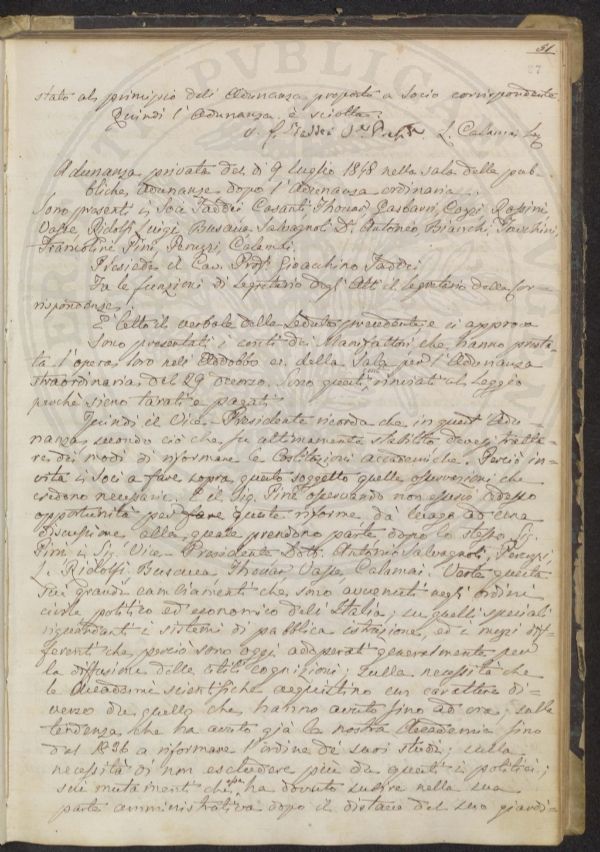 51
87
stato al principio dell'Adunanza proposto a Socio corrispondente
Quindi l'Adunanza è sciolta.
L. Calamai
Adunanza privata del dì 9 Luglio 1848 nella sala delle pub-
bliche adunanze dopo l'Adunanza ordinaria.
Sono presenti i Soci Taddei Casanti Thouar Gasbarri Cozzi Rossini
Vaspe Ridolfi Luigi Buscaino Salvagnoli Dr. Antonio Bianchi
Pini Peruzzi Calamai.
Presiede il Cav. Prof. Gioacchino Taddei
Fa le funzioni di Segretario degli Atti il Segretario delle Cor-
rispondenze.
È letto il verbale della Seduta precedente e si approva
Sono presentati i conti dei Manifattori che hanno presta-
ta l'opera loro nell'Addobbo ec. della Sala per l'Adunanza
straordinaria del 29 scorso. Sono questi rinviati al Seggio
perchè sieno tarati e pagati.
Quindi il Vice-Presidente ricorda che in quest'Adu-
nanza, secondo ciò che fu ultimamente stabilito devesi tratta-
re dei modi di riformare le Costituzioni accademiche. Perciò in-
vita i Soci a fare sopra questo soggetto quelle osservazioni che
credono necessarie. E il Sig. Pini osservando non esservi adesso
opportunità per fare queste riforme dà luogo ad una
discussione alla quale prendono parte dopo lo stesso Sig.
Pini i Sig. Vice-Presidente Dott. Antonio Salvagnoli, Peruzzi,
L. Ridolfi, Thouar Calamai. Verte questa
sui grandi cambiamenti che sono avvenuti negli ordini
civile politico ed economico dell'Italia; su quelli speciali
riguardanti i sistemi di pubblica istruzione, ed i mezzi dif-
ferenti che perciò sono oggi adoperati generalmente per
la diffusione delle utili cognizioni; sulla necessità che
le Accademie scientifiche acquistino un carattere di-
verso da quello che hanno avuto fino ad ora; sulla
tendenza che ha avuto già la nostra Accademia fino
dal 1836 a riformare l'ordine de' suoi studi; sulla
necessità di non escludere più da questi i politici;
sui mutamenti che ha dovuto subire nella sua
parte amministrativa dopo il distacco del suo giardi-